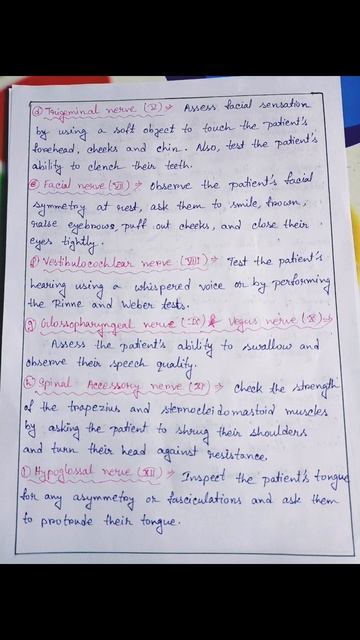 ⓓ Trigeminal nerve (V) → Assess facial sensation
by using a soft object to touch the patient's
forehead, cheeks and chin. Also, test the patient's
ability to clench their teeth.
ⓔ Facial nerve (VII) → Observe the patient's facial
symmetry at rest, ask them to smile, frown,
raise eyebrows, puff out cheeks, and close their
eyes tightly.
ⓕ Vestibulocochlear nerve (VIII) → Test the patient's
hearing using a whispered voice or by performing
the Rinne and Weber tests.
ⓖ Glossopharyngeal nerve (IX) & Vegus nerve (X) →
Assess the patient's ability to swallow and
observe their speech quality.
ⓗ Spinal Accessory nerve (XI) → Check the strength
of the trapezius and sternocleidomastoid muscles
by asking the patient to shrug their shoulders
and turn their head against resistance.
ⓘ Hypoglossal nerve (XII) → Inspect the patient's tongue
for any asymmetry or fasciculations and ask them
to protrude their tongue.